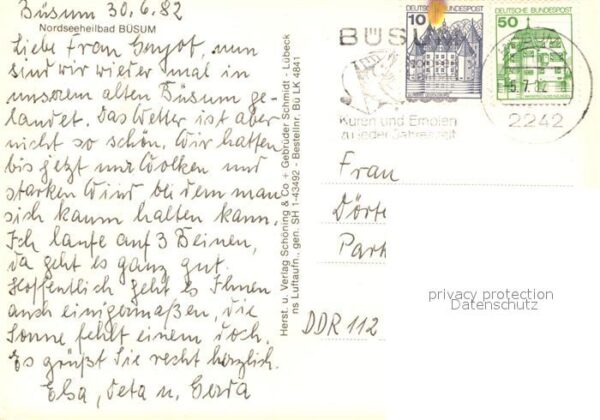 Büsum 30.6.82
Nordseeheilbad BÜSUM
Liebe Frau nun
sind wir wieder mal in
unserem alten Büsum ge-
landet. Das Wetter ist aber
nicht so schön. Wir hatten
bis jetzt nur Wolken und
starken Wind bei dem man
sich kaum halten kann.
Ich laufe auf 3 Beinen,
da geht es ganz gut.
Hoffentlich geht es Ihnen
auch einigermaßen, die
Sonne fehlt einem doch.
Es grüßt Sie recht herzlich.
Elsa, Deta u. Gerda
Herst. u. Verlag Schöning & Co + Gebrüder Schmidt - Lübeck
ns Luftaufn., gen. SH 1-43492 - Bestellnr. Bü LK 4841
10 DEUTSCHE BUNDESPOST
50 DEUTSCHE BUNDESPOST
BÜSU
Kuren und Erholen
zu jeder Jahreszeit
5.7.82
2242
Frau
Dörte
Park
DDR 112
privacy protection
Datenschutz